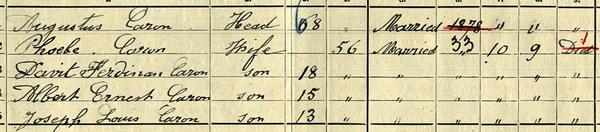 Augustus Caron Head 68 Married 1878 " " "
2 Phoebe Caron Wife " 56 Married 33 10 9 Died 1
3 Davit Ferdinan Caron son 18 " " " " " "
4 Albert Ernest Caron son 15 " " " " " "
5 Joseph Louis Caron son 13 " " " " " "